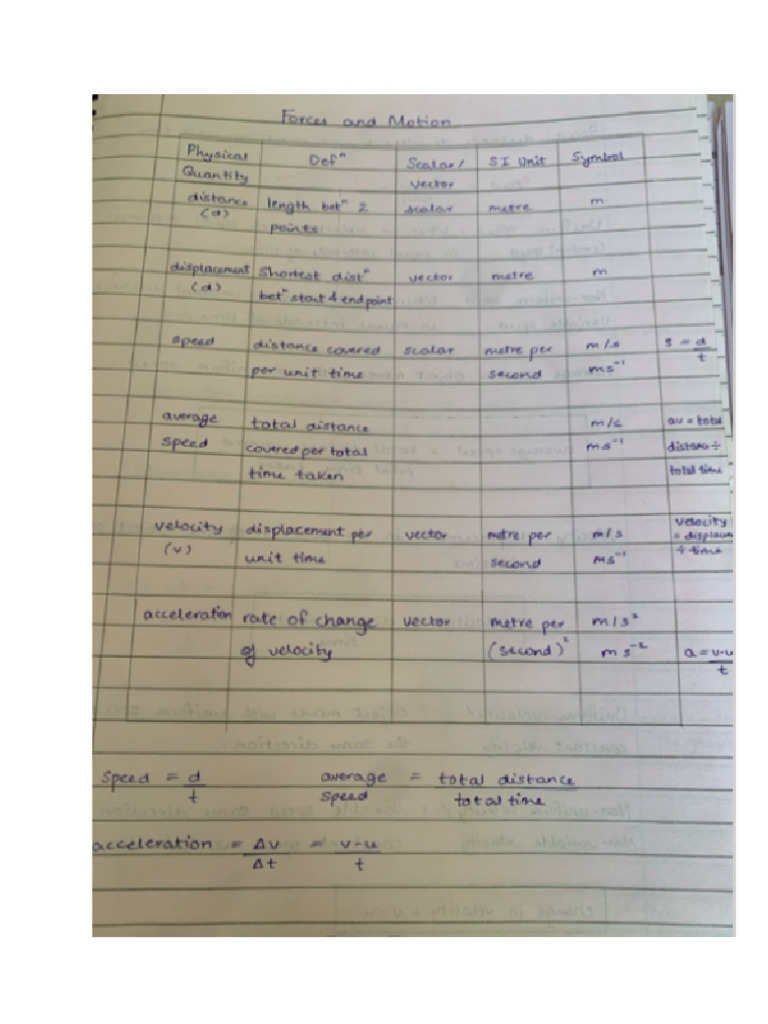 Forces and Motion
Physical Quantity Defⁿ Scalar/ vector SI Unit Symbol
distance (d) length betⁿ 2 points scalar metre m
displacement (d) Shortest distⁿ betⁿ start & endpoint vector metre m
speed distance covered per unit time scalar metre per second m/s ms⁻¹ s = d/t
average speed total distance covered per total time taken m/s ms⁻¹ av = total distanc ÷ total time
velocity (v) displacement per unit time vector metre per second m/s ms⁻¹ velocity = displace ÷ time
acceleration rate of change of velocity vector metre per (second)² m/s² ms⁻² a = v-u/t
Speed = d/t average speed = total distance/total time
acceleration = Δv/Δt = v-u/t